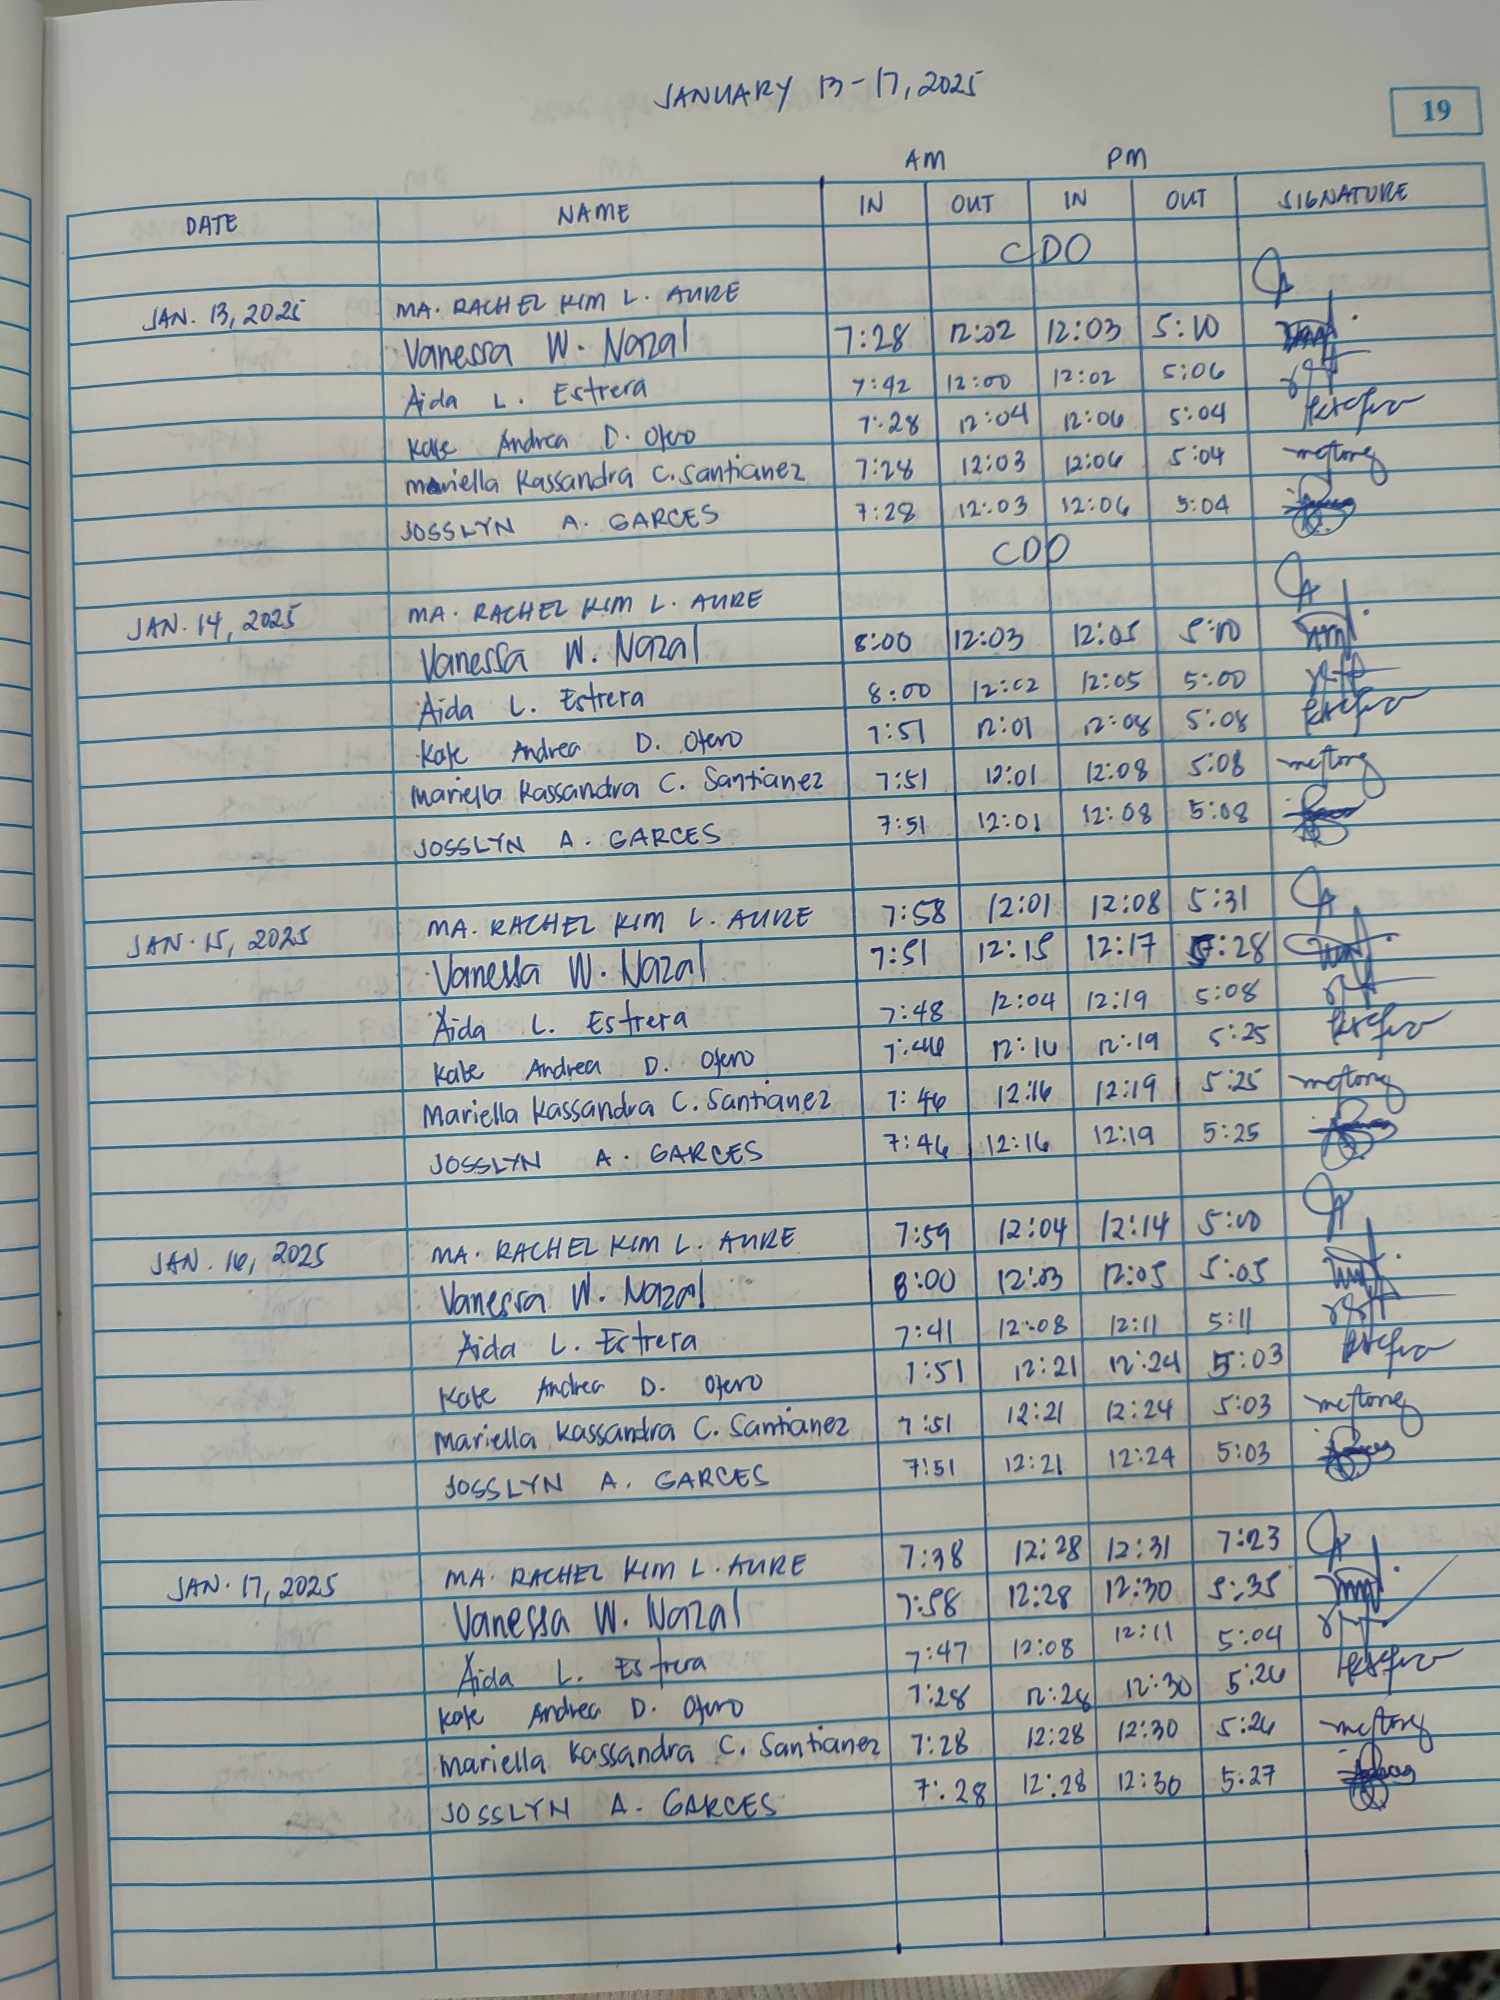 JANUARY 13-17, 2025
19
AM PM
DATE NAME IN OUT IN OUT SIGNATURE
CDO
JAN. 13, 2025 MA. RACHEL KIM L. AURE
Vanessa W. Nazal 7:28 12:02 12:03 5:10
Aida L. Estrera 7:42 12:00 12:02 5:06
Kate Andrea D. Otero 7:28 12:04 12:06 5:04
Mariella Kassandra C. Santianez 7:28 12:03 12:06 5:04
JOSSLYN A. GARCES 7:28 12:03 12:06 5:04
CDO
JAN. 14, 2025 MA. RACHEL KIM L. AURE
Vanessa W. Nazal 8:00 12:03 12:05 5:10
Aida L. Estrera 8:00 12:02 12:05 5:00
Kate Andrea D. Otero 7:51 12:01 12:08 5:08
Mariella Kassandra C. Santianez 7:51 12:01 12:08 5:08
JOSSLYN A. GARCES 7:51 12:01 12:08 5:08
JAN. 15, 2025 MA. RACHEL KIM L. AURE 7:58 12:01 12:08 5:31
Vanessa W. Nazal 7:51 12:15 12:17 5:28
Aida L. Estrera 7:48 12:04 12:19 5:08
Kate Andrea D. Otero 7:46 12:16 12:19 5:25
Mariella Kassandra C. Santianez 7:46 12:16 12:19 5:25
JOSSLYN A. GARCES 7:46 12:16 12:19 5:25
JAN. 16, 2025 MA. RACHEL KIM L. AURE 7:59 12:04 12:14 5:10
Vanessa W. Nazal 8:00 12:03 12:05 5:05
Aida L. Estrera 7:41 12:08 12:11 5:11
Kate Andrea D. Otero 7:51 12:21 12:24 5:03
Mariella Kassandra C. Santianez 7:51 12:21 12:24 5:03
JOSSLYN A. GARCES 7:51 12:21 12:24 5:03
JAN. 17, 2025 MA. RACHEL KIM L. AURE 7:38 12:28 12:31 7:23
Vanessa W. Nazal 7:58 12:28 12:30 5:35
Aida L. Estrera 7:47 12:08 12:11 5:04
Kate Andrea D. Otero 7:28 12:28 12:30 5:26
Mariella Kassandra C. Santianez 7:28 12:28 12:30 5:26
JOSSLYN A. GARCES 7:28 12:28 12:30 5:27